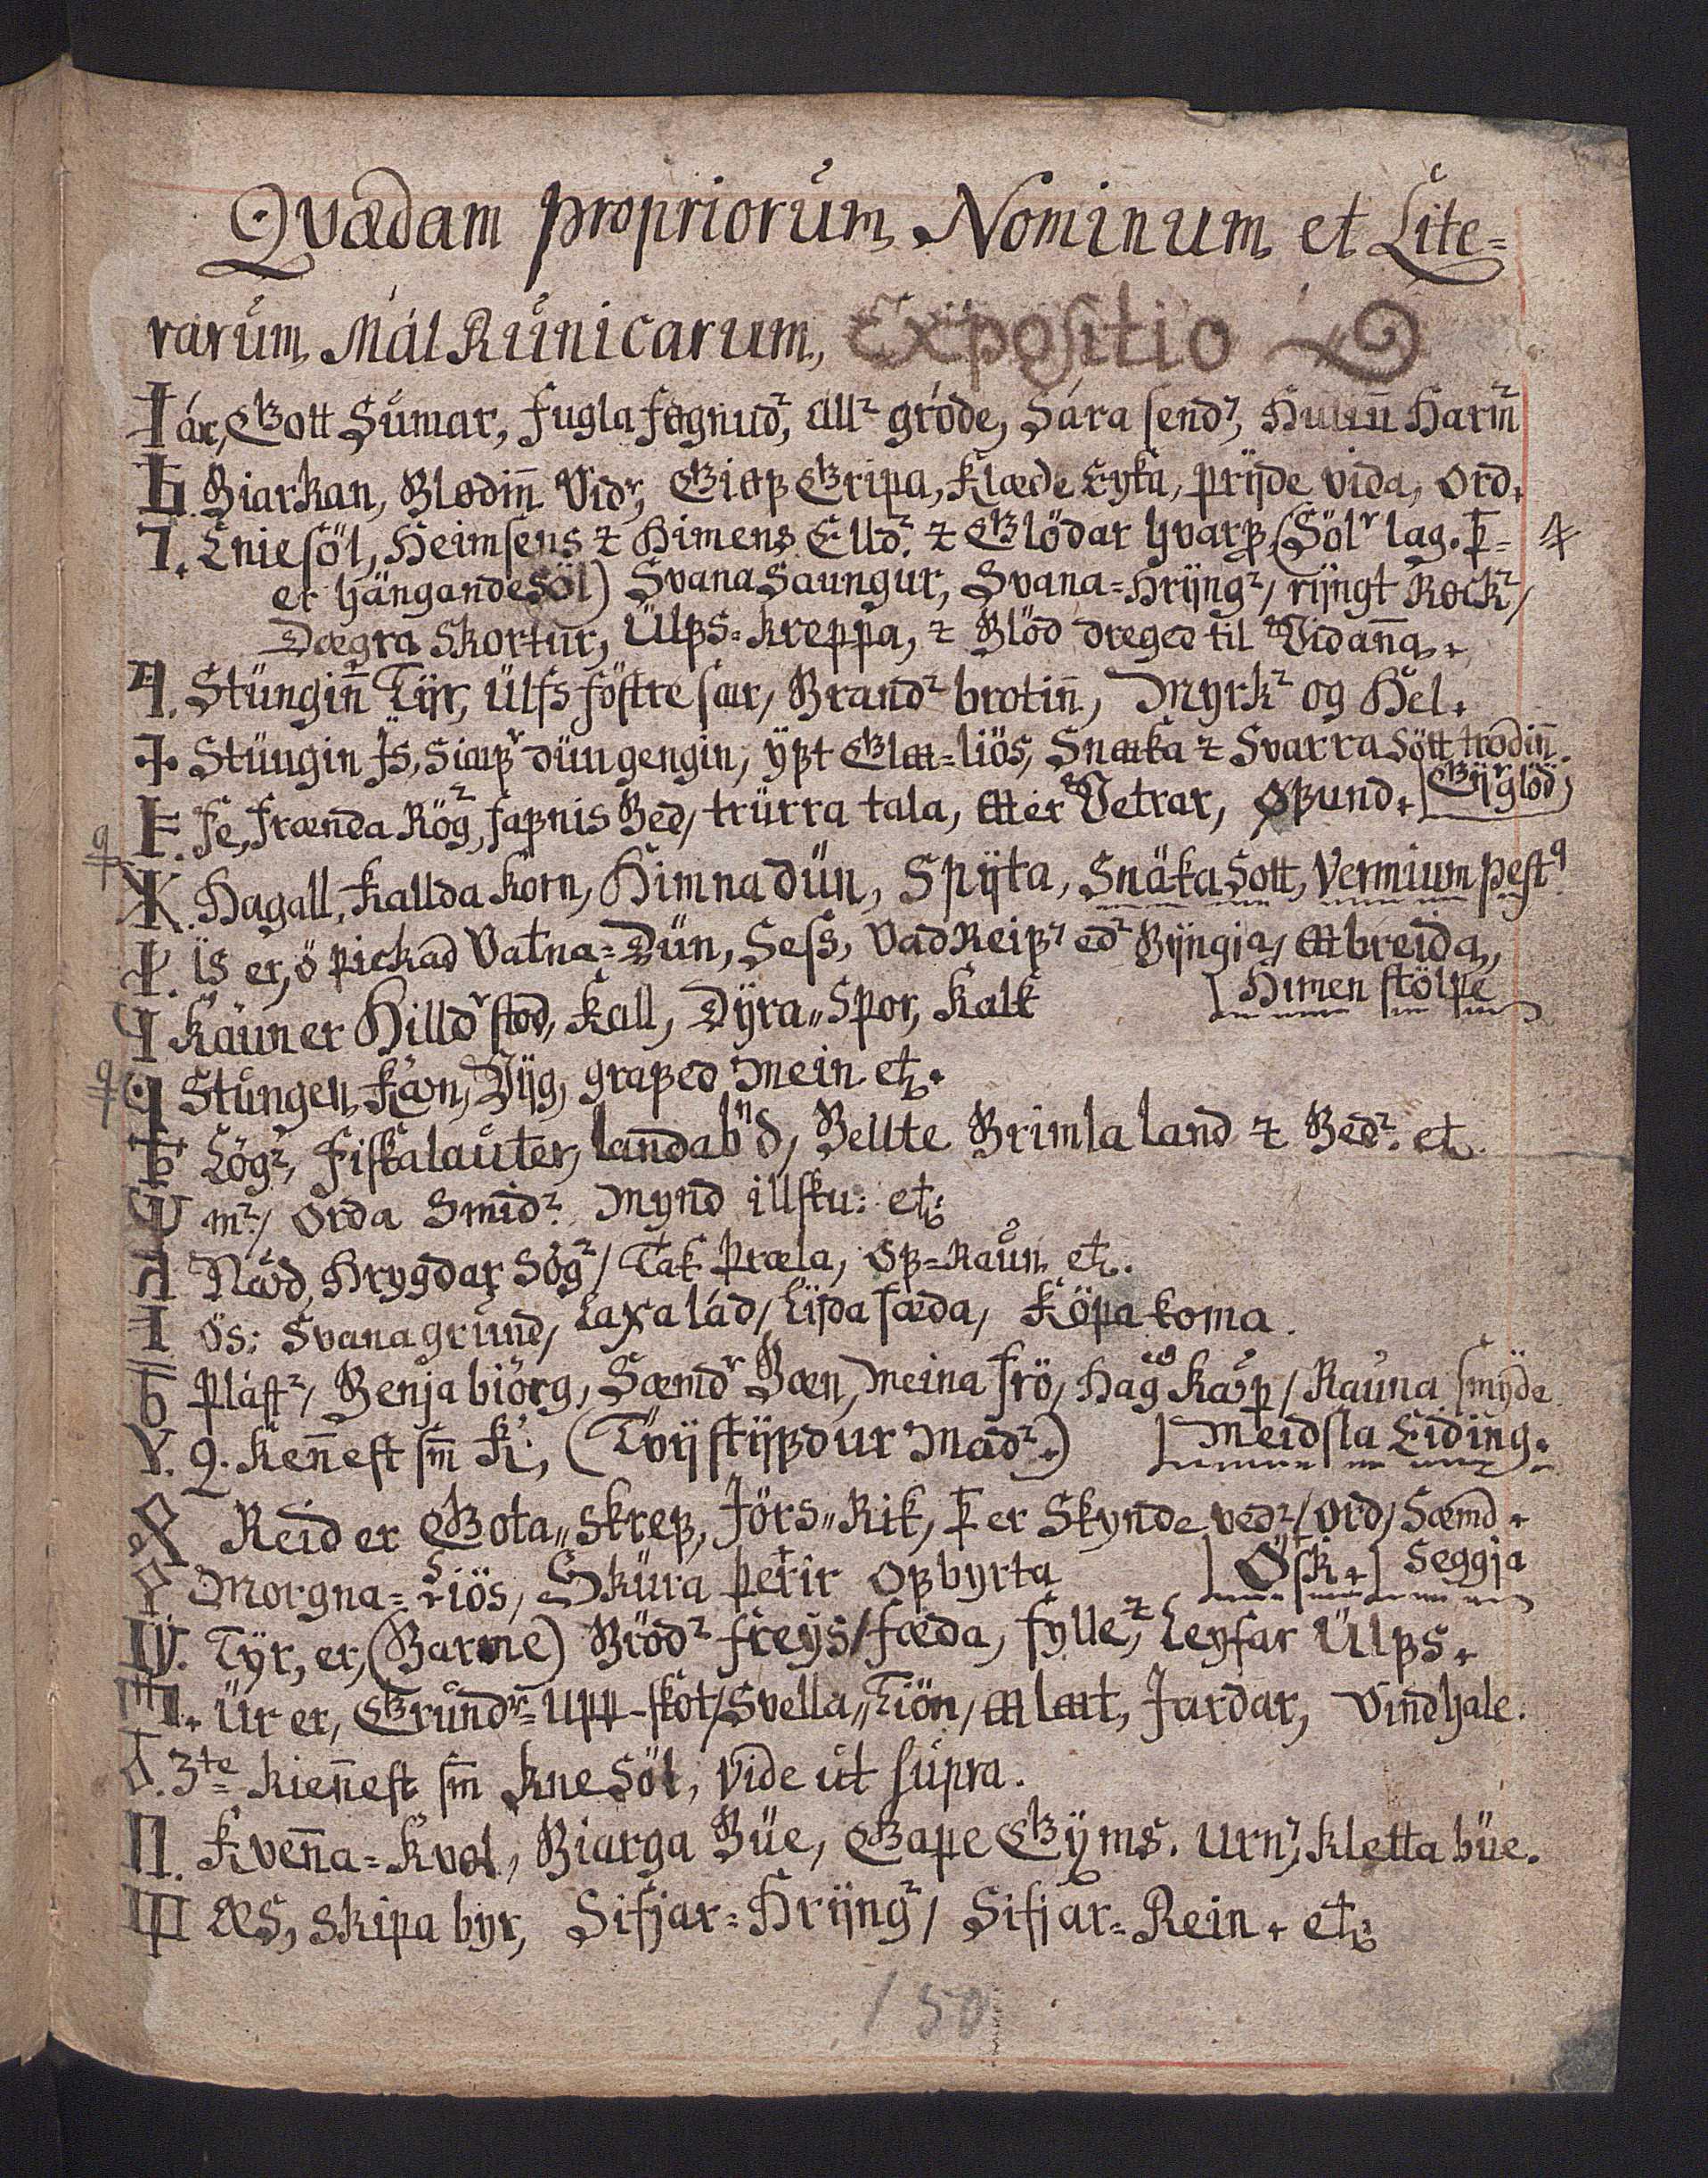 Qvædam propriorům Nominum et Lite=
rarům Mál Růnicarum, Expositio
ár, Gott Sůmar, fugla fognud², all² gróde, Sára send², Harm̄
Biarkan, Blodiñ Vidr, Giaf Gripa, Klæde Eyka, prÿde vida, ord.
7. Eniesöl, Heimsens & Himens Elld². & Glödar hvarf (Söl r lag. Þ=
er hángande söl) Svana Saungur, Svana=Hrÿng², rÿngt Rock²,
Dægra Skortur, Ülfs=kreppa, & Blöd dreged til Vidaña.
Stüngiñ Tÿr, Ülfs föstre sar, Brand² brotiñ, Myrk² og Hel.
Stüngin Ïs, Siafr dün gengin, ÿft Glæ=liös, Snæka & Svarra Sött trodiñ.
F. Fe, Frænda Rög², fafnis Bed, trürra tala, Mer Vetrar, Øfund. [Gÿr glöd,
Hagall, Kallda korn, Himna dün, Spÿta, Snäka Sott, Vermium pest
Ïs er, ö pickad Vatna=Dün, Sess, Vad Reif² ed² Bÿngia, breida,
Käun er Hilld r stod, Kall, Dÿra„Spor, Kalk [Himen stölpe
Stůngen Kavn, Dÿg, grafed Mein etc.
Lög², Fiskalaůter, landab ñd, Bellte Brimla land & Bed². etc.
m², Orda Smid². Mynd illsku: etc:
Navd, Hrygdar Sög², Tak Þræla, Of=Raůn etc.
Ös: Svana grůnd, Laxa lád, Lÿda fæda, Köpa koma.
Plást², Benja biörg, Sæmdr Bæn, Meina frö, Hag Kavp, Raůna smÿde
Y. Q. Keñest sm̄ K, (Tvÿstÿfdur Mad².) [Meidsla Eiding.
Reid er Gota„skref, Jörs„Rik, Þ er Skynde ved², ord, Sæmd.
Morgna=Liös, Sküra Þerir Of byrta [Ösk.] Seggja
Tÿr, er, (Barme) Bröd² freÿs, fæda, fylle, Leyfar Ülfs.
Ür er, Grůndr=upp-skot, Svella„Tiön, Jardar, Vindhale.
3te kieñest sm̄ Kne Söl, vide ůt sůpra.
Π. Kveña=Kvöl, Biarga Büe, Gape Gÿms. Urn², kletta büe.
Æs, skipa byr, Sifjar=Hrÿng², Sifjar=Rein. etc:
150